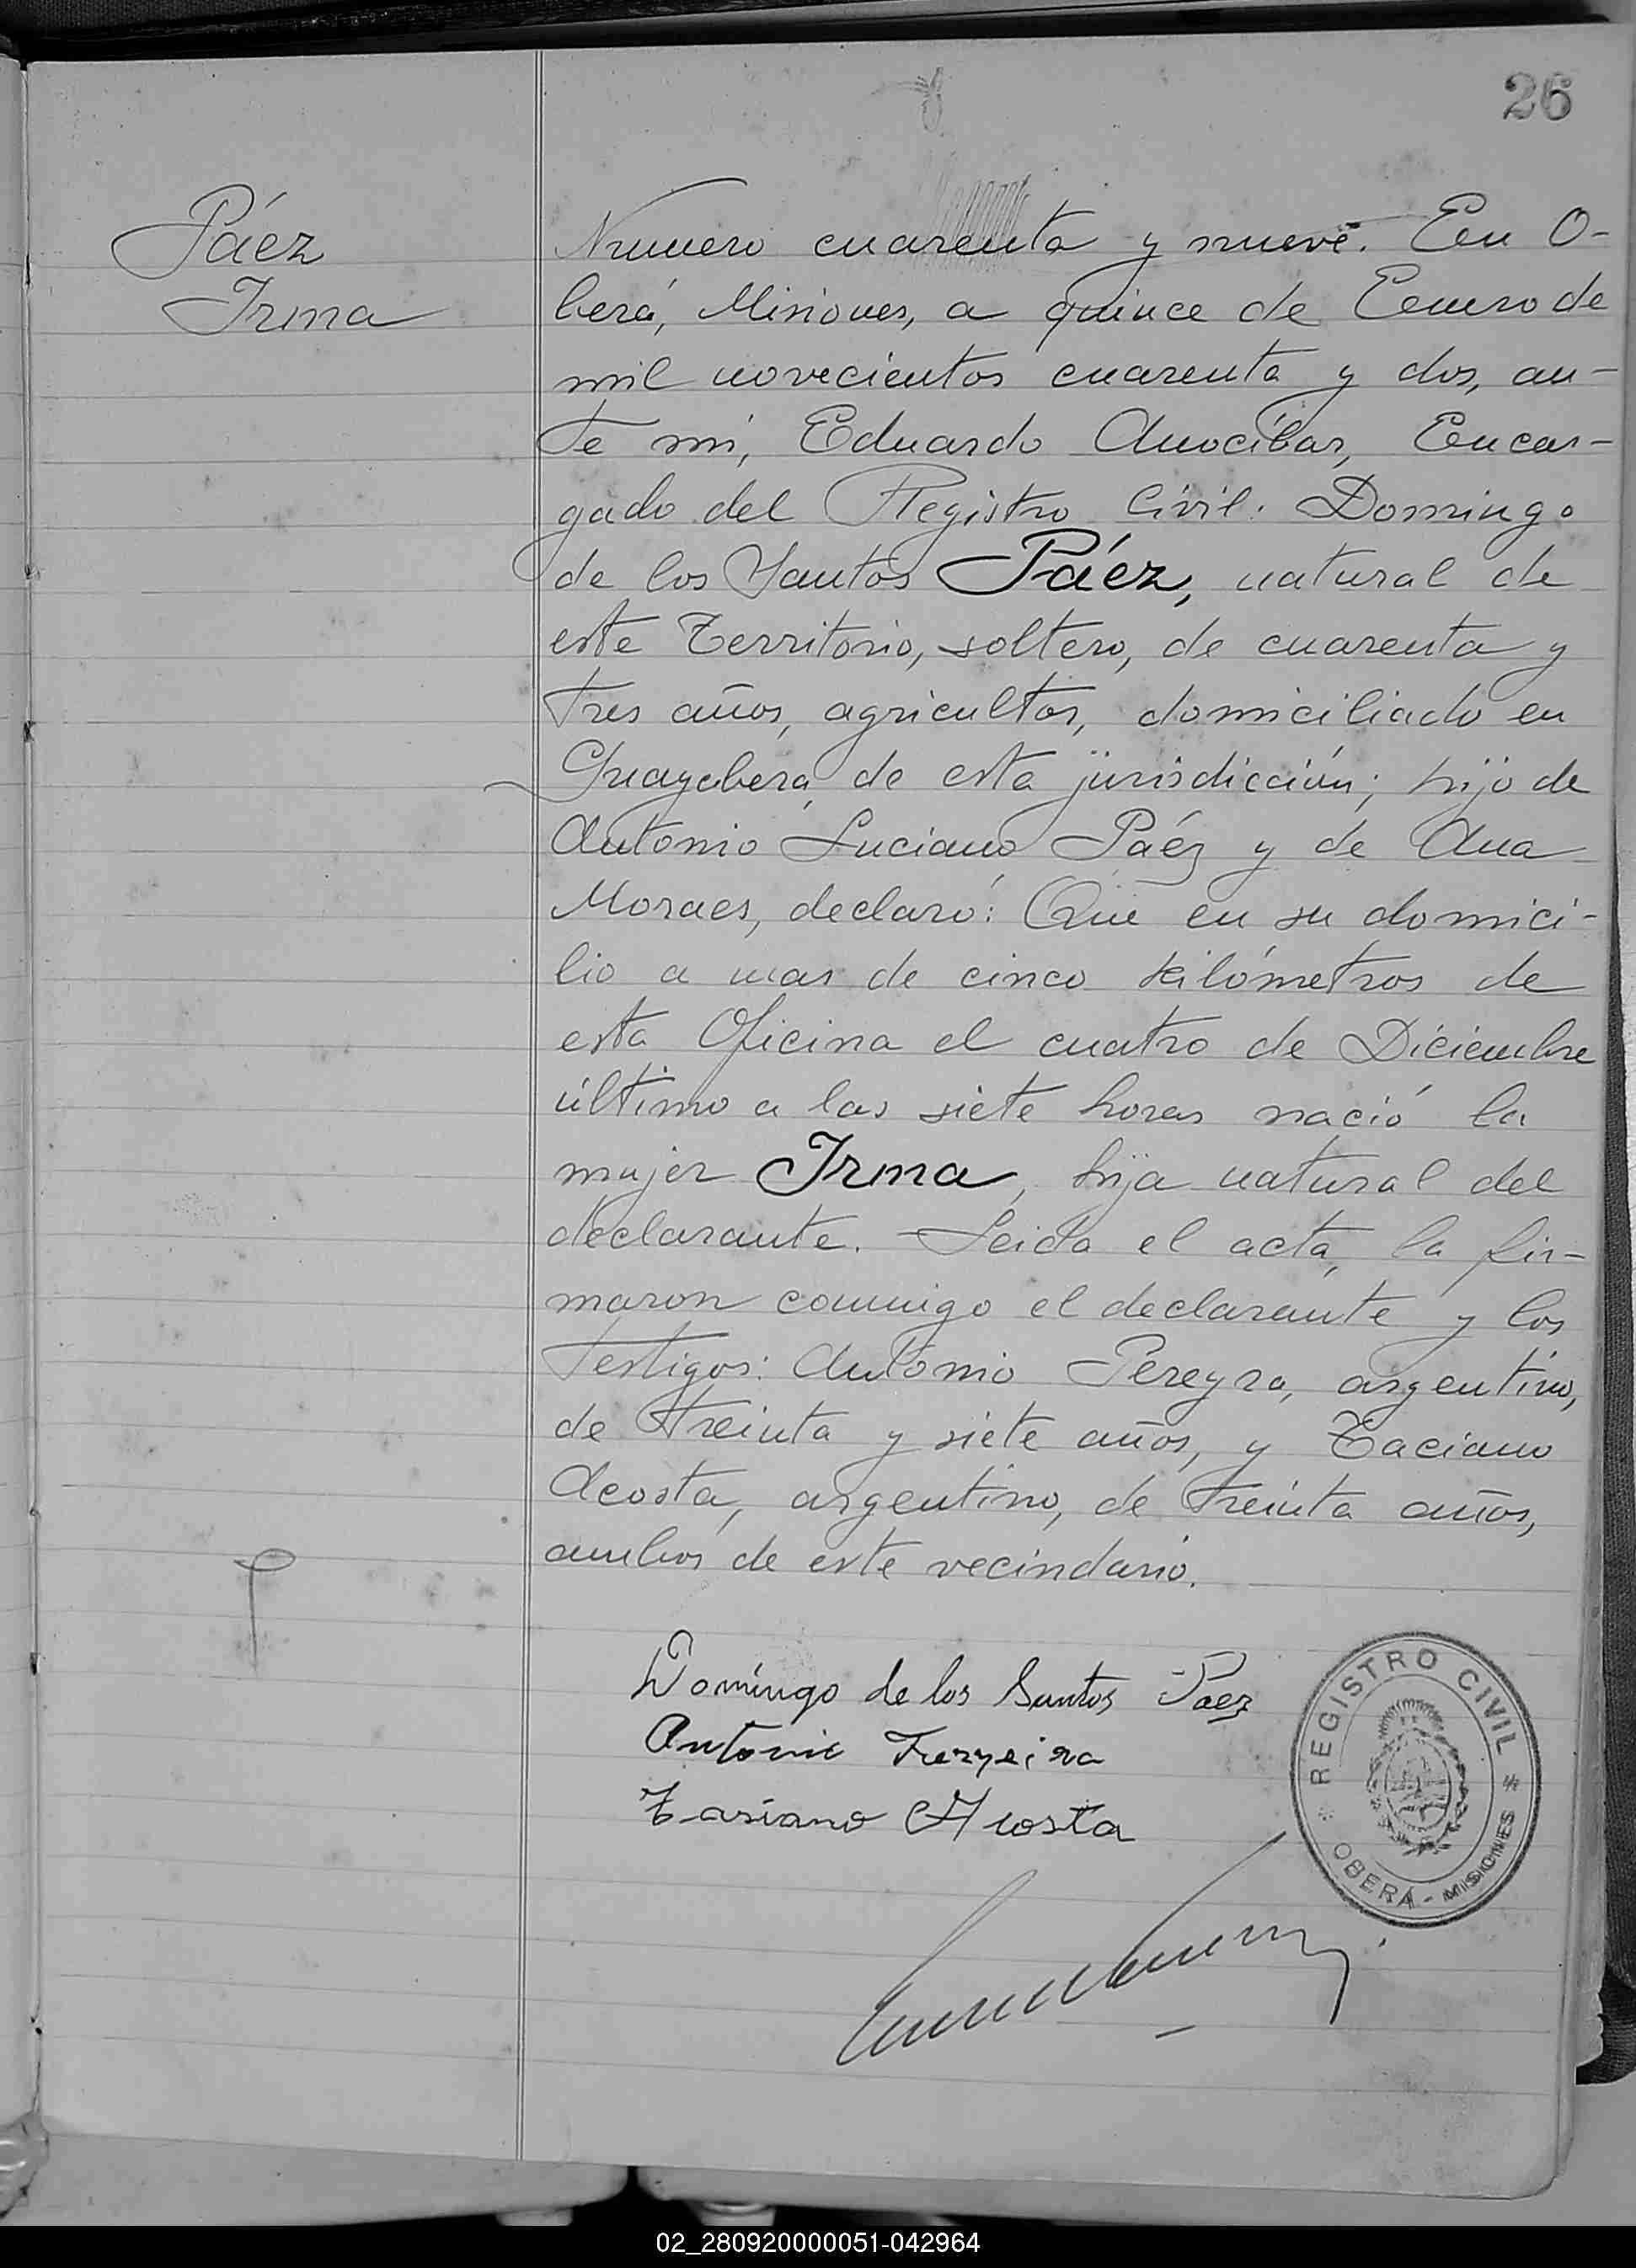 26
Páez
Irma
Numero cuarenta y nueve. En O-
berá, Misiones, a quince de Enero de
mil novecientos cuarenta y dos, an-
te mi, Eduardo Anocíbar, Encar-
gado del Registro Civil. Domingo
de los Santos Páez, natural de
este Territorio, soltero, de cuarenta y
tres años, agricultor, domiciliado en
Guayabera de esta jurisdicción; hijo de
Antonio Luciano Páez y de Ana
Moraes, declaró: Que en su domici-
lio a mas de cinco kilómetros de
esta Oficina el cuatro de Diciembre
último a las siete horas nació la
mujer Irma, hija natural del
declarante. Leida el acta, la fir-
maron conmigo el declarante y los
testigos: Antonio Pereyra, argentino,
de treinta y siete años, y Taciano
Acosta, argentino, de treinta años,
ambos de este vecindario.
Domingo de los Santos Paez
Antonio
Tasiano Acosta
REGISTRO CIVIL
OBERÁ - MISIONES
02_280920000051-042964